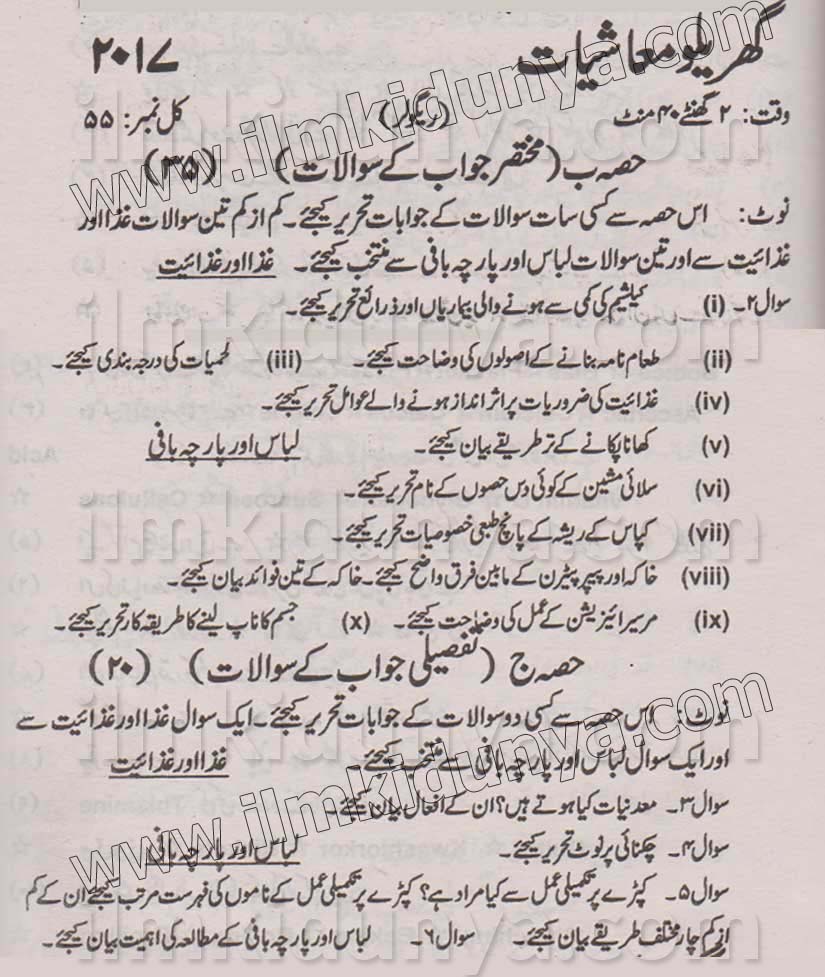 گھریلو معاشیات ۲۰۱۷
وقت: ۲ گھنٹے ۴۰ منٹ (ریگولر) کل نمبر: ۵۵
حصہ ب (مختصر جواب کے سوالات) (۳۵)
نوٹ: اس حصہ سے کسی سات سوالات کے جوابات تحریر کیجئے۔ کم از کم تین سوالات غذا اور
غذائیت سے اور تین سوالات لباس اور پارچہ بافی سے منتخب کیجئے۔ غذا اور غذائیت
سوال ۲۔ (i) کیلشیم کی کمی سے ہونے والی بیماریاں اور ذرائع تحریر کیجئے۔
(ii) طعام نامہ بنانے کے اصولوں کی وضاحت کیجئے۔ (iii) لحمیات کی درجہ بندی کیجئے۔
(iv) غذائیت کی ضروریات پر اثر انداز ہونے والے عوامل تحریر کیجئے
(v) کھانا پکانے کے تر طریقے بیان کیجئے۔ لباس اور پارچہ بافی
(vi) سلائی مشین کے کوئی دس حصوں کے نام تحریر کیجئے۔
(vii) کپاس کے ریشہ کے پانچ طبعی خصوصیات تحریر کیجئے۔
(viii) خاکہ اور پیپر پیٹرن کے مابین فرق واضح کیجئے۔ خاکہ کے تین فوائد بیان کیجئے۔
(ix) مرسیرائزیشن کے عمل کی وضاحت کیجئے۔ (x) جسم کا ناپ لینے کا طریقہ کار تحریر کیجئے۔
حصہ ج (تفصیلی جواب کے سوالات) (۲۰)
نوٹ: اس حصہ سے کسی دو سوالات کے جوابات تحریر کیجئے۔ ایک سوال غذا اور غذائیت سے
اور ایک سوال لباس اور پارچہ بافی سے منتخب کیجئے۔ غذا اور غذائیت
سوال ۳۔ معدنیات کیا ہوتے ہیں؟ ان کے افعال بیان کیجئے۔
سوال ۴۔ چکنائی پر نوٹ تحریر کیجئے۔ لباس اور پارچہ بافی
سوال ۵۔ کپڑے پر تکمیلی عمل سے کیا مراد ہے؟ کپڑے پر تکمیلی عمل کے ناموں کی فہرست مرتب کیجئے ان کے کم
از کم چار مختلف طریقے بیان کیجئے۔ سوال ۶۔ لباس اور پارچہ بافی کے مطالعہ کی اہمیت بیان کیجئے۔
www.ilmkidunya.com
www.ilmkidunya.com
ilmkidunya.com
ilmkidunya.com
ilmkidunya.com
ilmkidunya.com
ilmkidunya.com